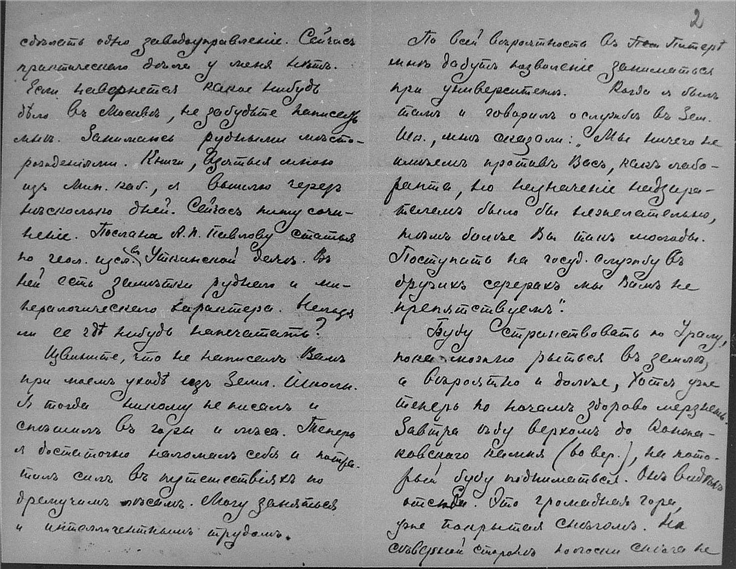 сдѣлать одно заводоуправленіе. Сейчасъ
практическаго дѣла у меня нѣтъ.
Если навернется какое нибудь
дѣло въ Москвѣ, не забудьте написать
мнѣ. Занимаюсь рудными мѣсто-
рожденіями. Книги, взятыя мною
изъ Мин. каб., я вышлю черезъ
нѣсколько дней. Сейчасъ пишу сочи-
неніе. Послана А. П. Павлову статья
по геол. изсл. въ Уткинской дачѣ. Въ
ней есть замѣтки руднаго и ми-
нералогическаго характера. Нельзя
ли ее гдѣ нибудь напечатать?
Извините, что не написалъ Вамъ
при моемъ уходѣ изъ Земл. Школы.
Я тогда никому не писалъ и
спѣшилъ въ горы и лѣса. Теперь
я достаточно наломалъ себѣ и потра-
тилъ силъ въ путешествіяхъ по
дремучимъ лѣсамъ. Могу заняться
и интеллигентнымъ трудомъ.
2
По всей вѣроятности въ Питерѣ
мнѣ дадутъ позволеніе заниматься
при университетѣ. Когда я былъ
тамъ и говорилъ о службѣ въ Зем.
Шк., мнѣ сказали: "Мы ничего не
имѣемъ противъ Васъ, какъ лабо-
ранта, но назначеніе надзира-
телемъ было бы нежелательно,
тѣмъ болѣе Вы такъ молоды.
Поступать на госуд. службу въ
другихъ сферахъ мы Вамъ не
препятствуемъ".
Буду странствовать по Уралу,
пока можно рыться въ землѣ,
а вѣроятно и дольше, хотя уже
теперь по ночамъ здорово мерзнешь.
Завтра ѣду верхомъ до Конжа-
ковскаго камня (вер.), на кото-
рый буду подниматься. Онъ виденъ
отсюда. Это громадная гора,
уже покрытая снѣгомъ. На
сѣверной сторонѣ полоски снѣга не